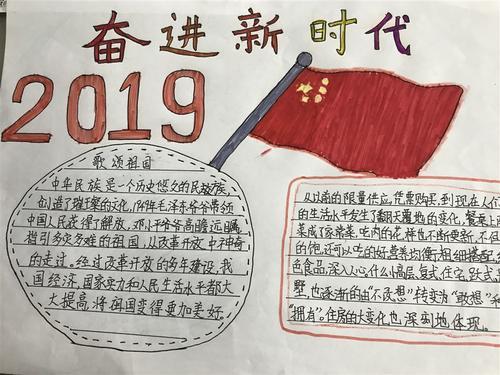 奋进新时代
2019
歌颂祖国
中华民族是一个历史悠久的民族
创造了璀璨的文化,1949年毛泽东爷爷带领
中国人民获得了解放,邓小平爷爷高瞻远瞩
指引多灾多难的祖国,从改革开放中神奇
的走过。经过改革开放的多年建设,我
国经济,国家实力和人民生活水平都大
大提高,将祖国变得更加美好。
从以前的限量供应,凭票购买,到现在人们
的生活水平发生了翻天覆地的变化,餐桌上
菜成了家常菜,吃肉的花样也不断更新,不
的饱,还可以吃的好,营养均衡,粗细搭配,
色食品深入人心,什么小高层,复式住宅,跃式,
墅,也逐渐的由“不敢想”转变为“敢想”和
“拥有”。住房的大变化也,深刻地体现。